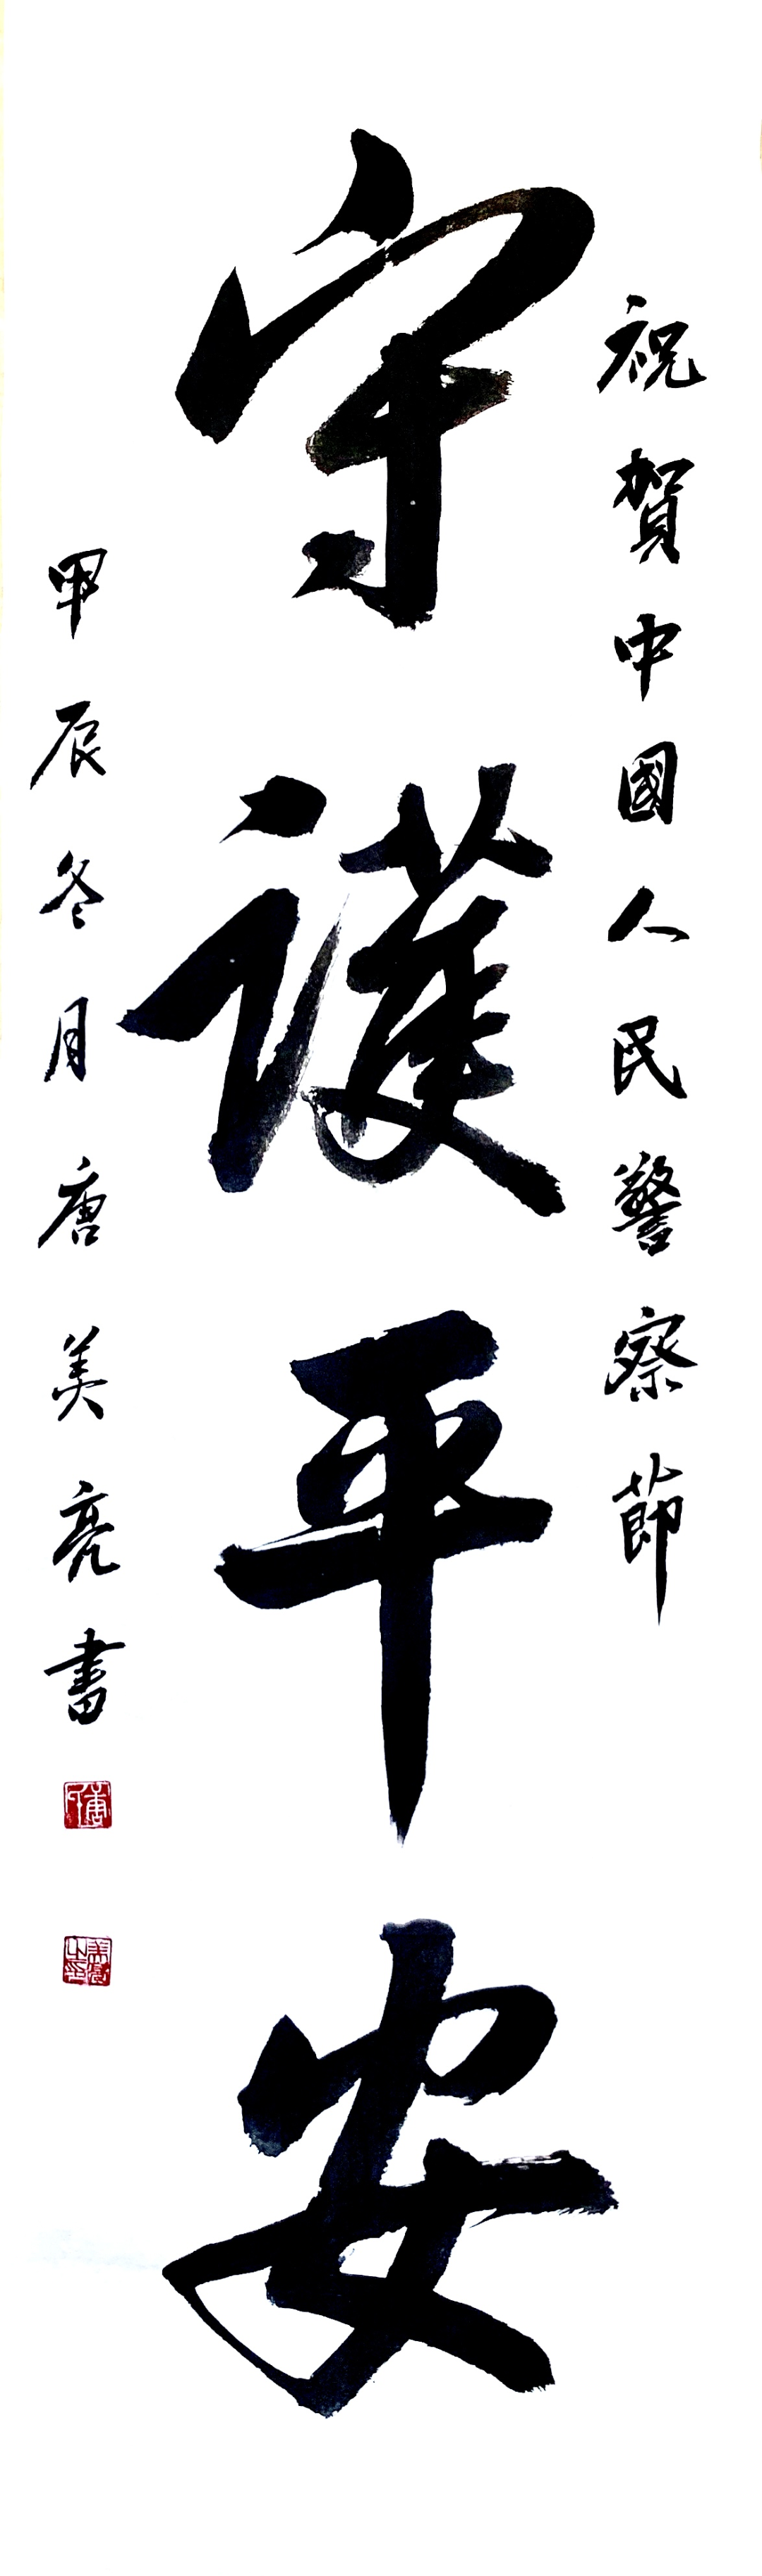 祝賀中國人民警察節
守護平安
甲辰冬月唐美亮書